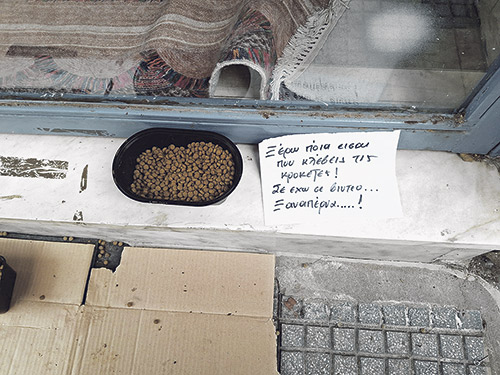 Ξέρω ποια εισαι
που κλέβεις τις
κροκέτες!
Σε εχω σε βιντεο...
Ξαναπέρνα.....!